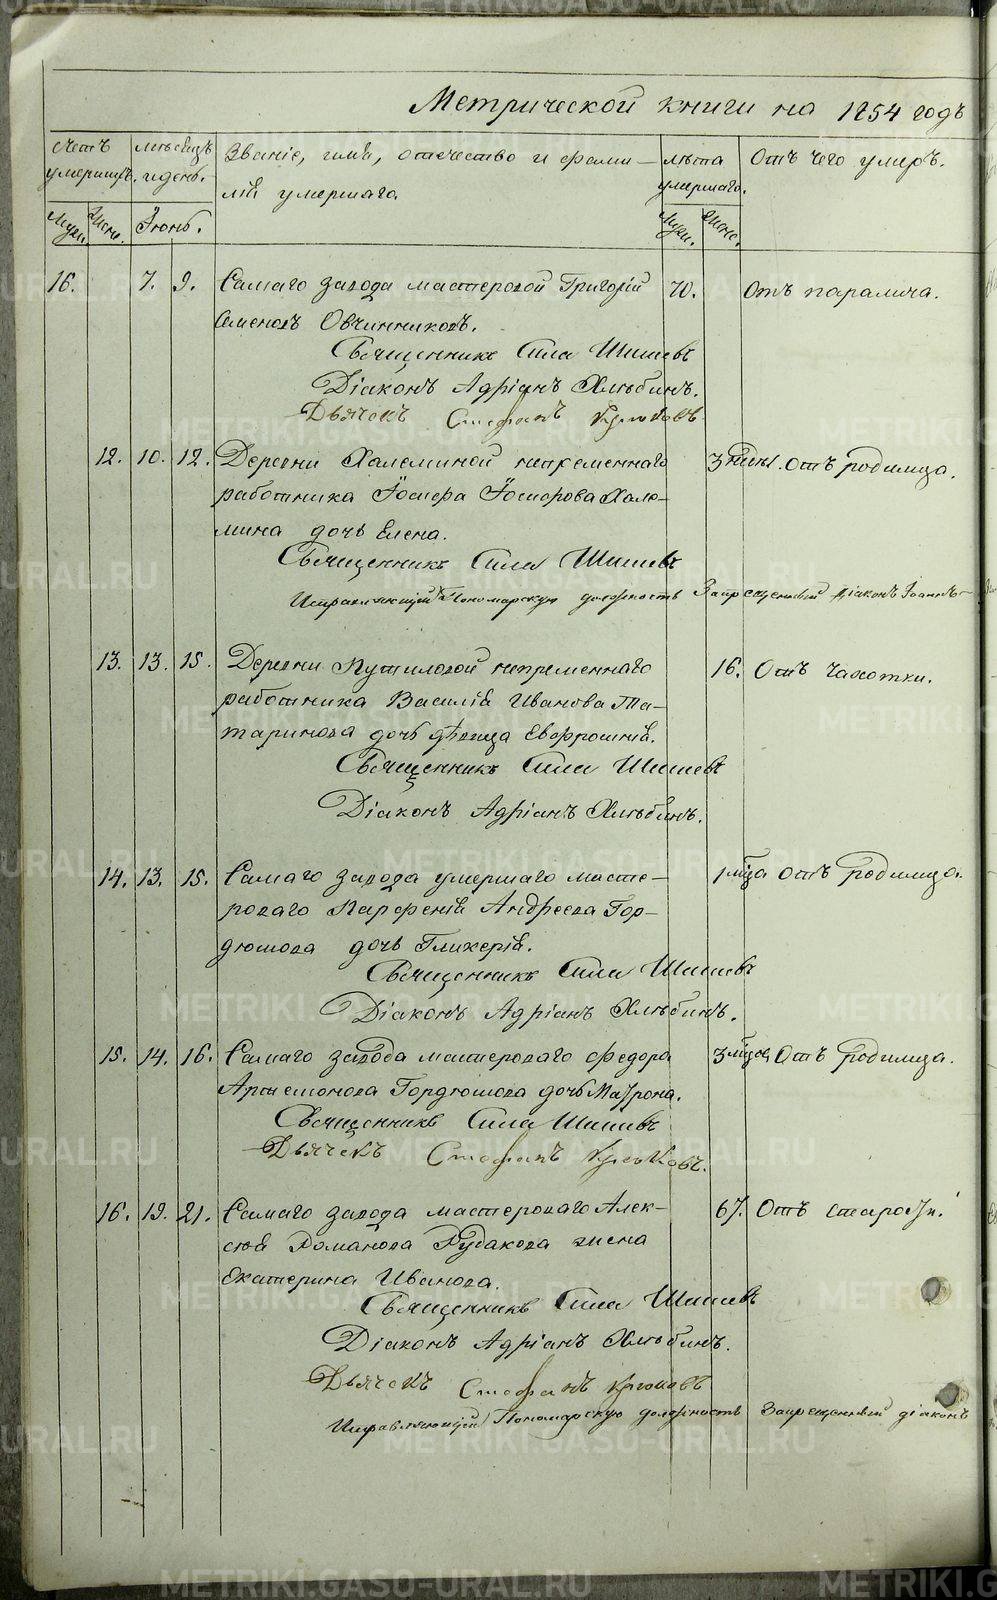 Метрической книги на 1854 годъ
Счетъ умершихъ. Мѣсяцъ и день. Званіе, имя, отечество и фами-
лія умершаго. Лѣта умершаго. Отъ чего умеръ.
Муж. Женс. Іюнь. Муж. Женс.
16. 7. 9. Самаго завода мастеровой Григорій 70. Отъ паралича.
Семеновъ Овчинниковъ.
Священникъ Сила Шишевъ
Діаконъ Адріанъ Хлѣбинъ.
Дьячекъ Стефанъ Крюковъ.
12. 10. 12. Деревни Халеминой непременнаго 3 нед. отъ родимца.
работника Іосифа Іосифова Хале-
мина дочь Елена.
Священникъ Сила Шишевъ
Исправляющій Пономарскую должность Запрещенный діаконъ Іоаннъ
13. 13. 15. Деревни Путиловой непременнаго 16. Отъ чахотки.
работника Василія Иванова Та-
таринова дочь дѣвица Евфросинія.
Священникъ Сила Шишевъ
Діаконъ Адріанъ Хлѣбинъ.
14. 13. 15. Самаго завода умершаго масте- 1 мѣца отъ родимца.
роваго Парфенія Андреева Гор-
дюшова дочь Гликерія.
Священникъ Сила Шишевъ
Діаконъ Адріанъ Хлѣбинъ.
15. 14. 16. Самаго завода мастероваго Федора 3 мѣцов Отъ родимца.
Артемонова Гордюшова дочь Матрона.
Священникъ Сила Шишевъ
Дьячекъ Стефанъ Крюковъ.
16. 19. 21. Самаго завода мастероваго Алек- 67. Отъ старости.
сѣя Романова Рудакова жена
Екатерина Иванова.
Священникъ Сила Шишевъ
Діаконъ Адріанъ Хлѣбинъ.
Дьячекъ Стефанъ Крюковъ
Исправляющій Пономарскую должность Запрещенный діаконъ
METRIKI.GASO-URAL.RU